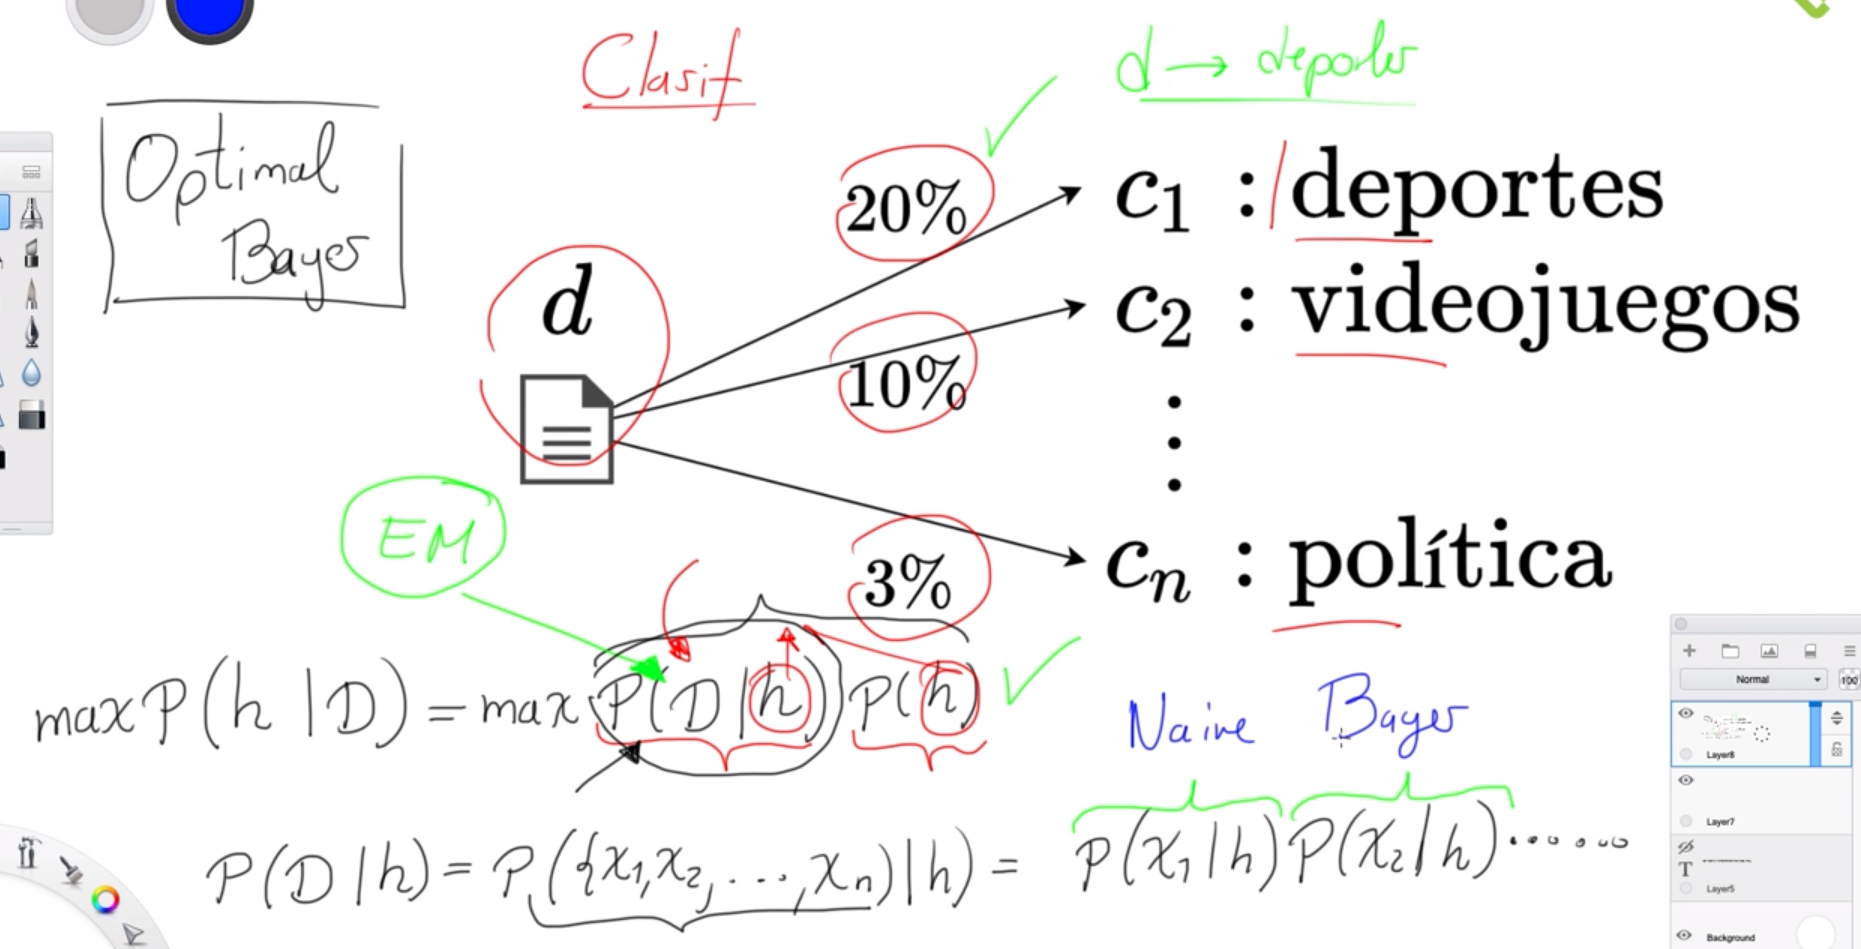 Clasif
d → deportes
Optimal
Bayes
20%
c1 : deportes
d
c2 : videojuegos
10%
EM
3%
cn : política
max P(h|D) = max P(D|h) P(h)
Naive Bayes
P(D|h) = P({x1,x2,...,xn)|h) = P(x1|h) P(x2|h) ......
Normal
100
Layer8
Layer7
T
Layer5
Background